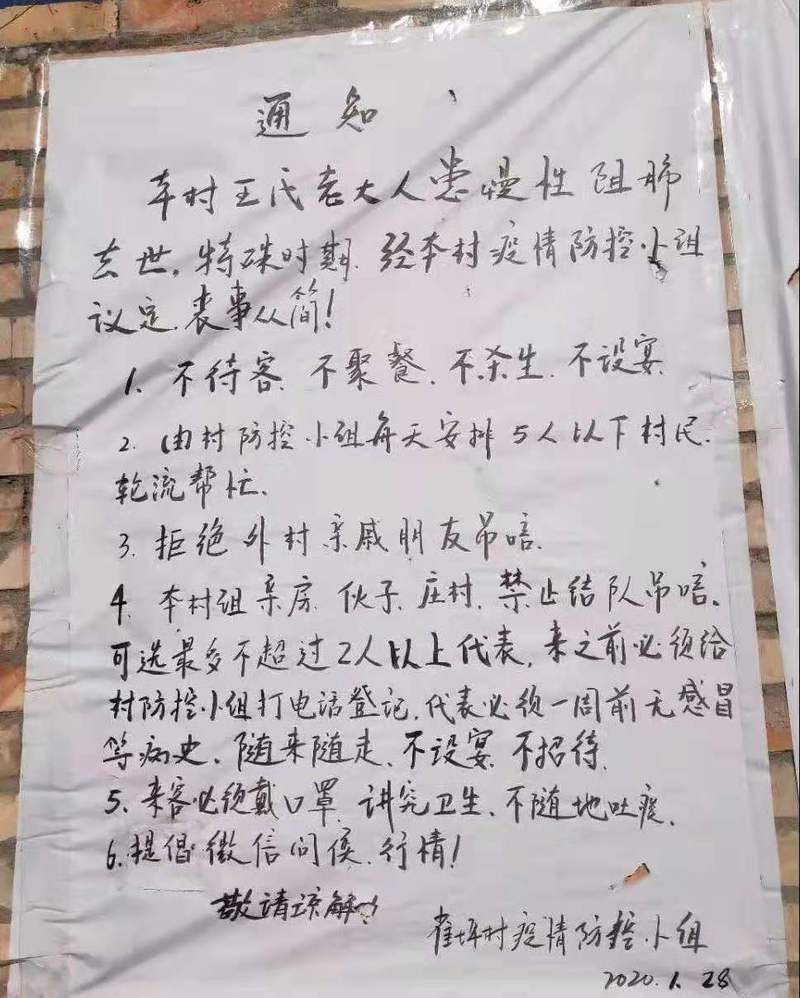 通知
本村王氏老大人患慢性阻肺
去世。特殊时期.经本村疫情防控小组
议定.丧事从简!
1. 不待客.不聚餐.不杀生.不设宴.
2. 由村防控小组每天安排5人以下村民.
轮流帮忙.
3. 拒绝外村亲戚朋友吊唁.
4. 本村组亲房.伙子.庄村.禁止结队吊唁.
可选最多不超过2人以上代表,来之前必须给
村防控小组打电话登记.代表必须一周前无感冒
等病史.随来随走.不设宴.不招待.
5. 来客必须戴口罩.讲究卫生.不随地吐痰.
6. 提倡微信问候.行情!
敬请谅解!
崔坪村疫情防控小组
2020.1.28